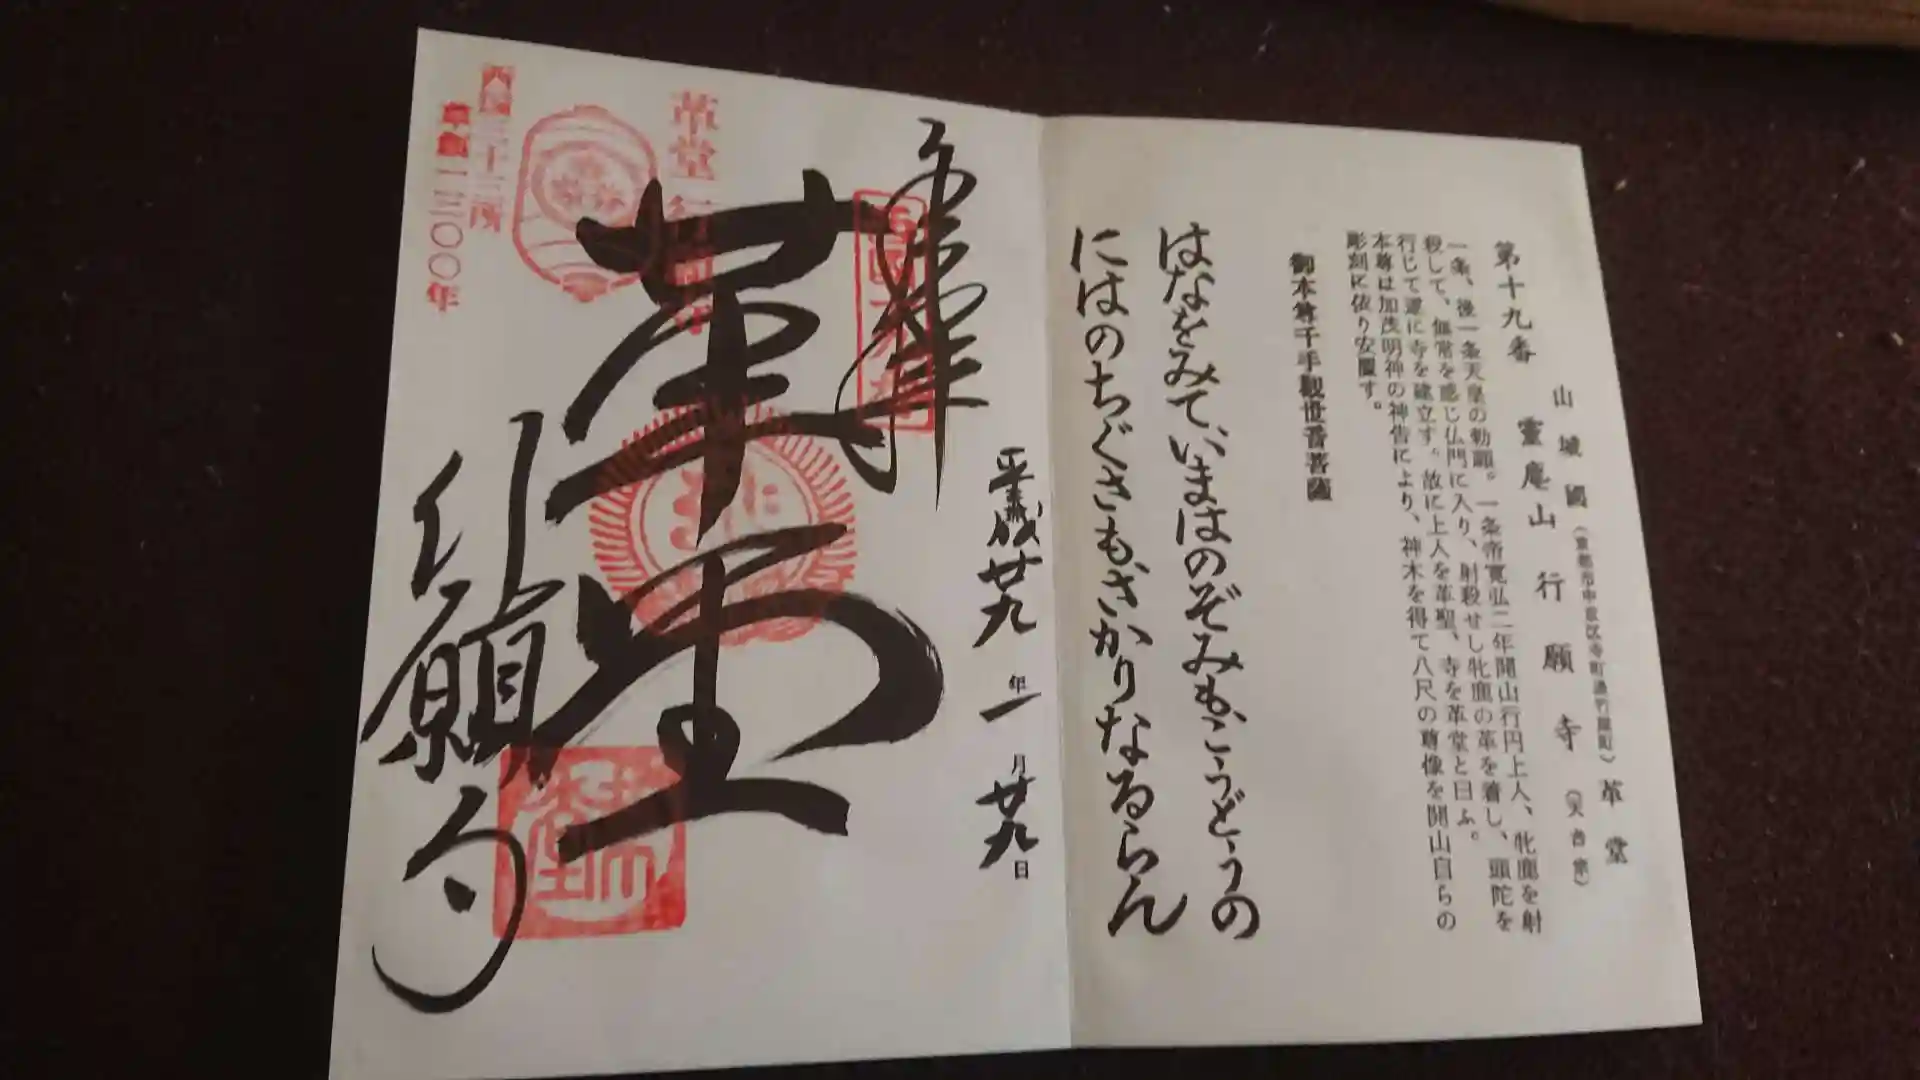 山城國（京都市中京区寺町通竹屋町）革堂
第十九番 靈麀山行願寺（天台宗）
一条、後一条天皇の勅願。一条帝寛弘二年開山行円上人、牝鹿を射
殺して、無常を感じ仏門に入り、射殺せし牝鹿の革を着し、頭陀を
行じて遂に寺を建立す。故に上人を革聖、寺を革堂と曰ふ。
本尊は加茂明神の神告により、神木を得て八尺の尊像を開山自らの
彫刻に依り安置す。
御本尊千手観世音菩薩
はなをみていまはのぞみもこうどうの
にはのちぐさもさかりなるらん
奉拝
平成廿九年一月廿九日
革堂
行願寺
革堂行願寺
西国三十三所
草創一三〇〇年